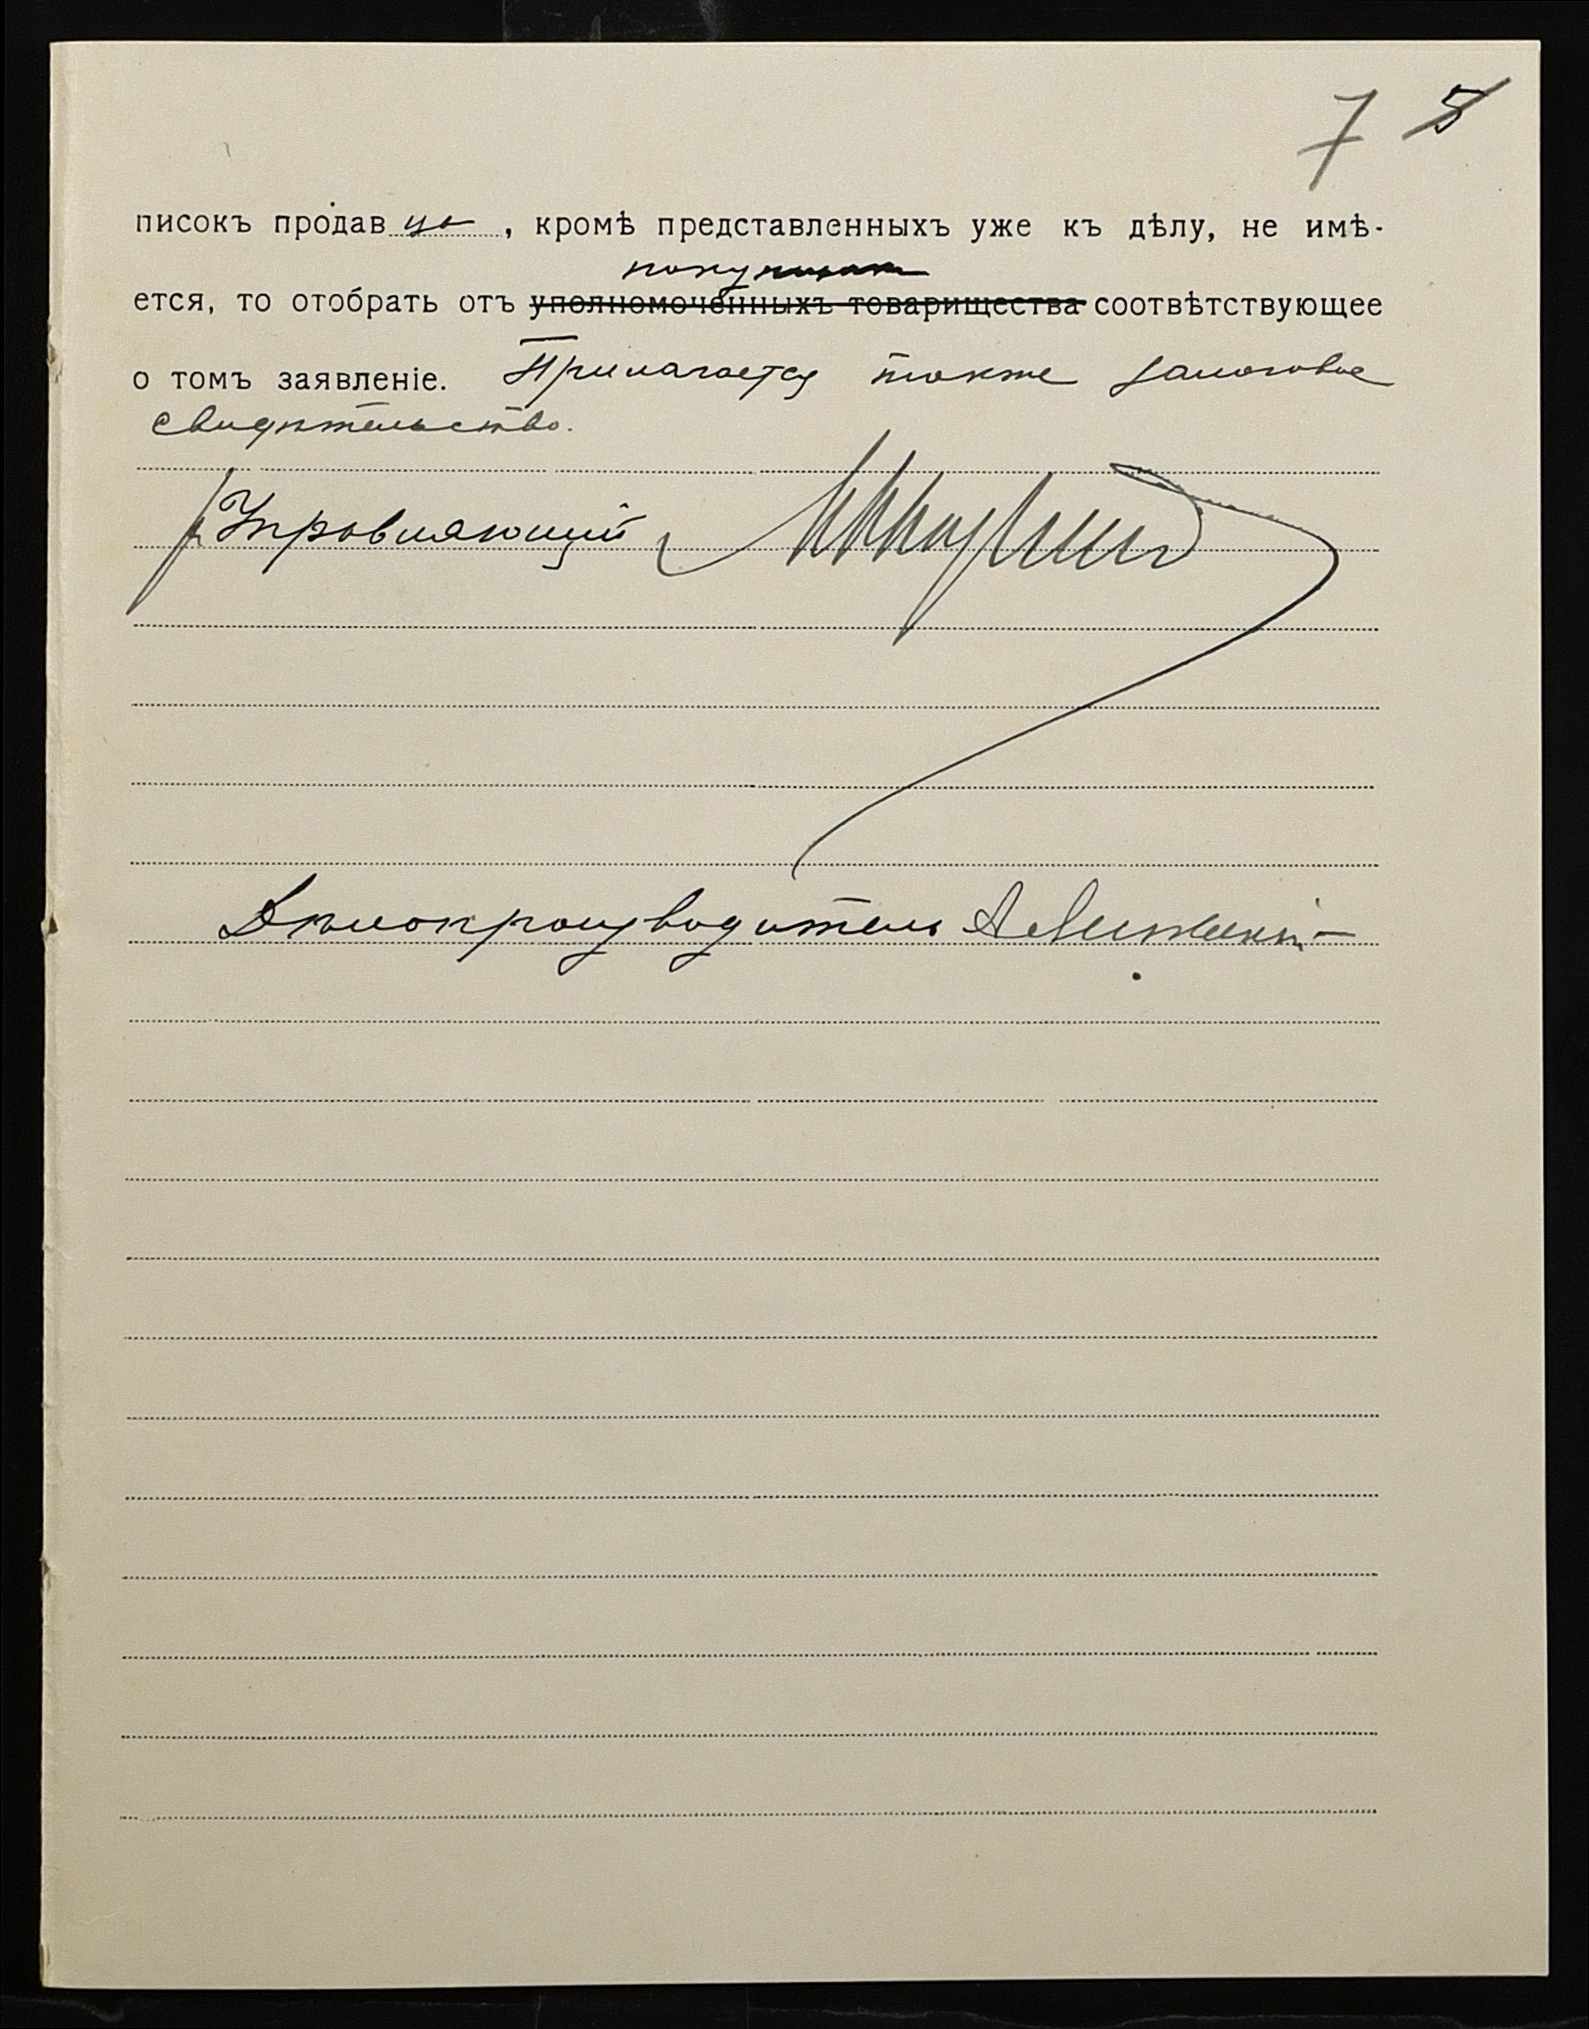 7 5
писокъ продавца, кромѣ представленныхъ уже къ дѣлу, не имѣ-
ется, то отобрать отъ уполномоченныхъ товарищества соотвѣтствующее
о томъ заявленіе. Прилагается также залоговое
свидѣтельство.
Управляющій
Дѣлопроизводитель